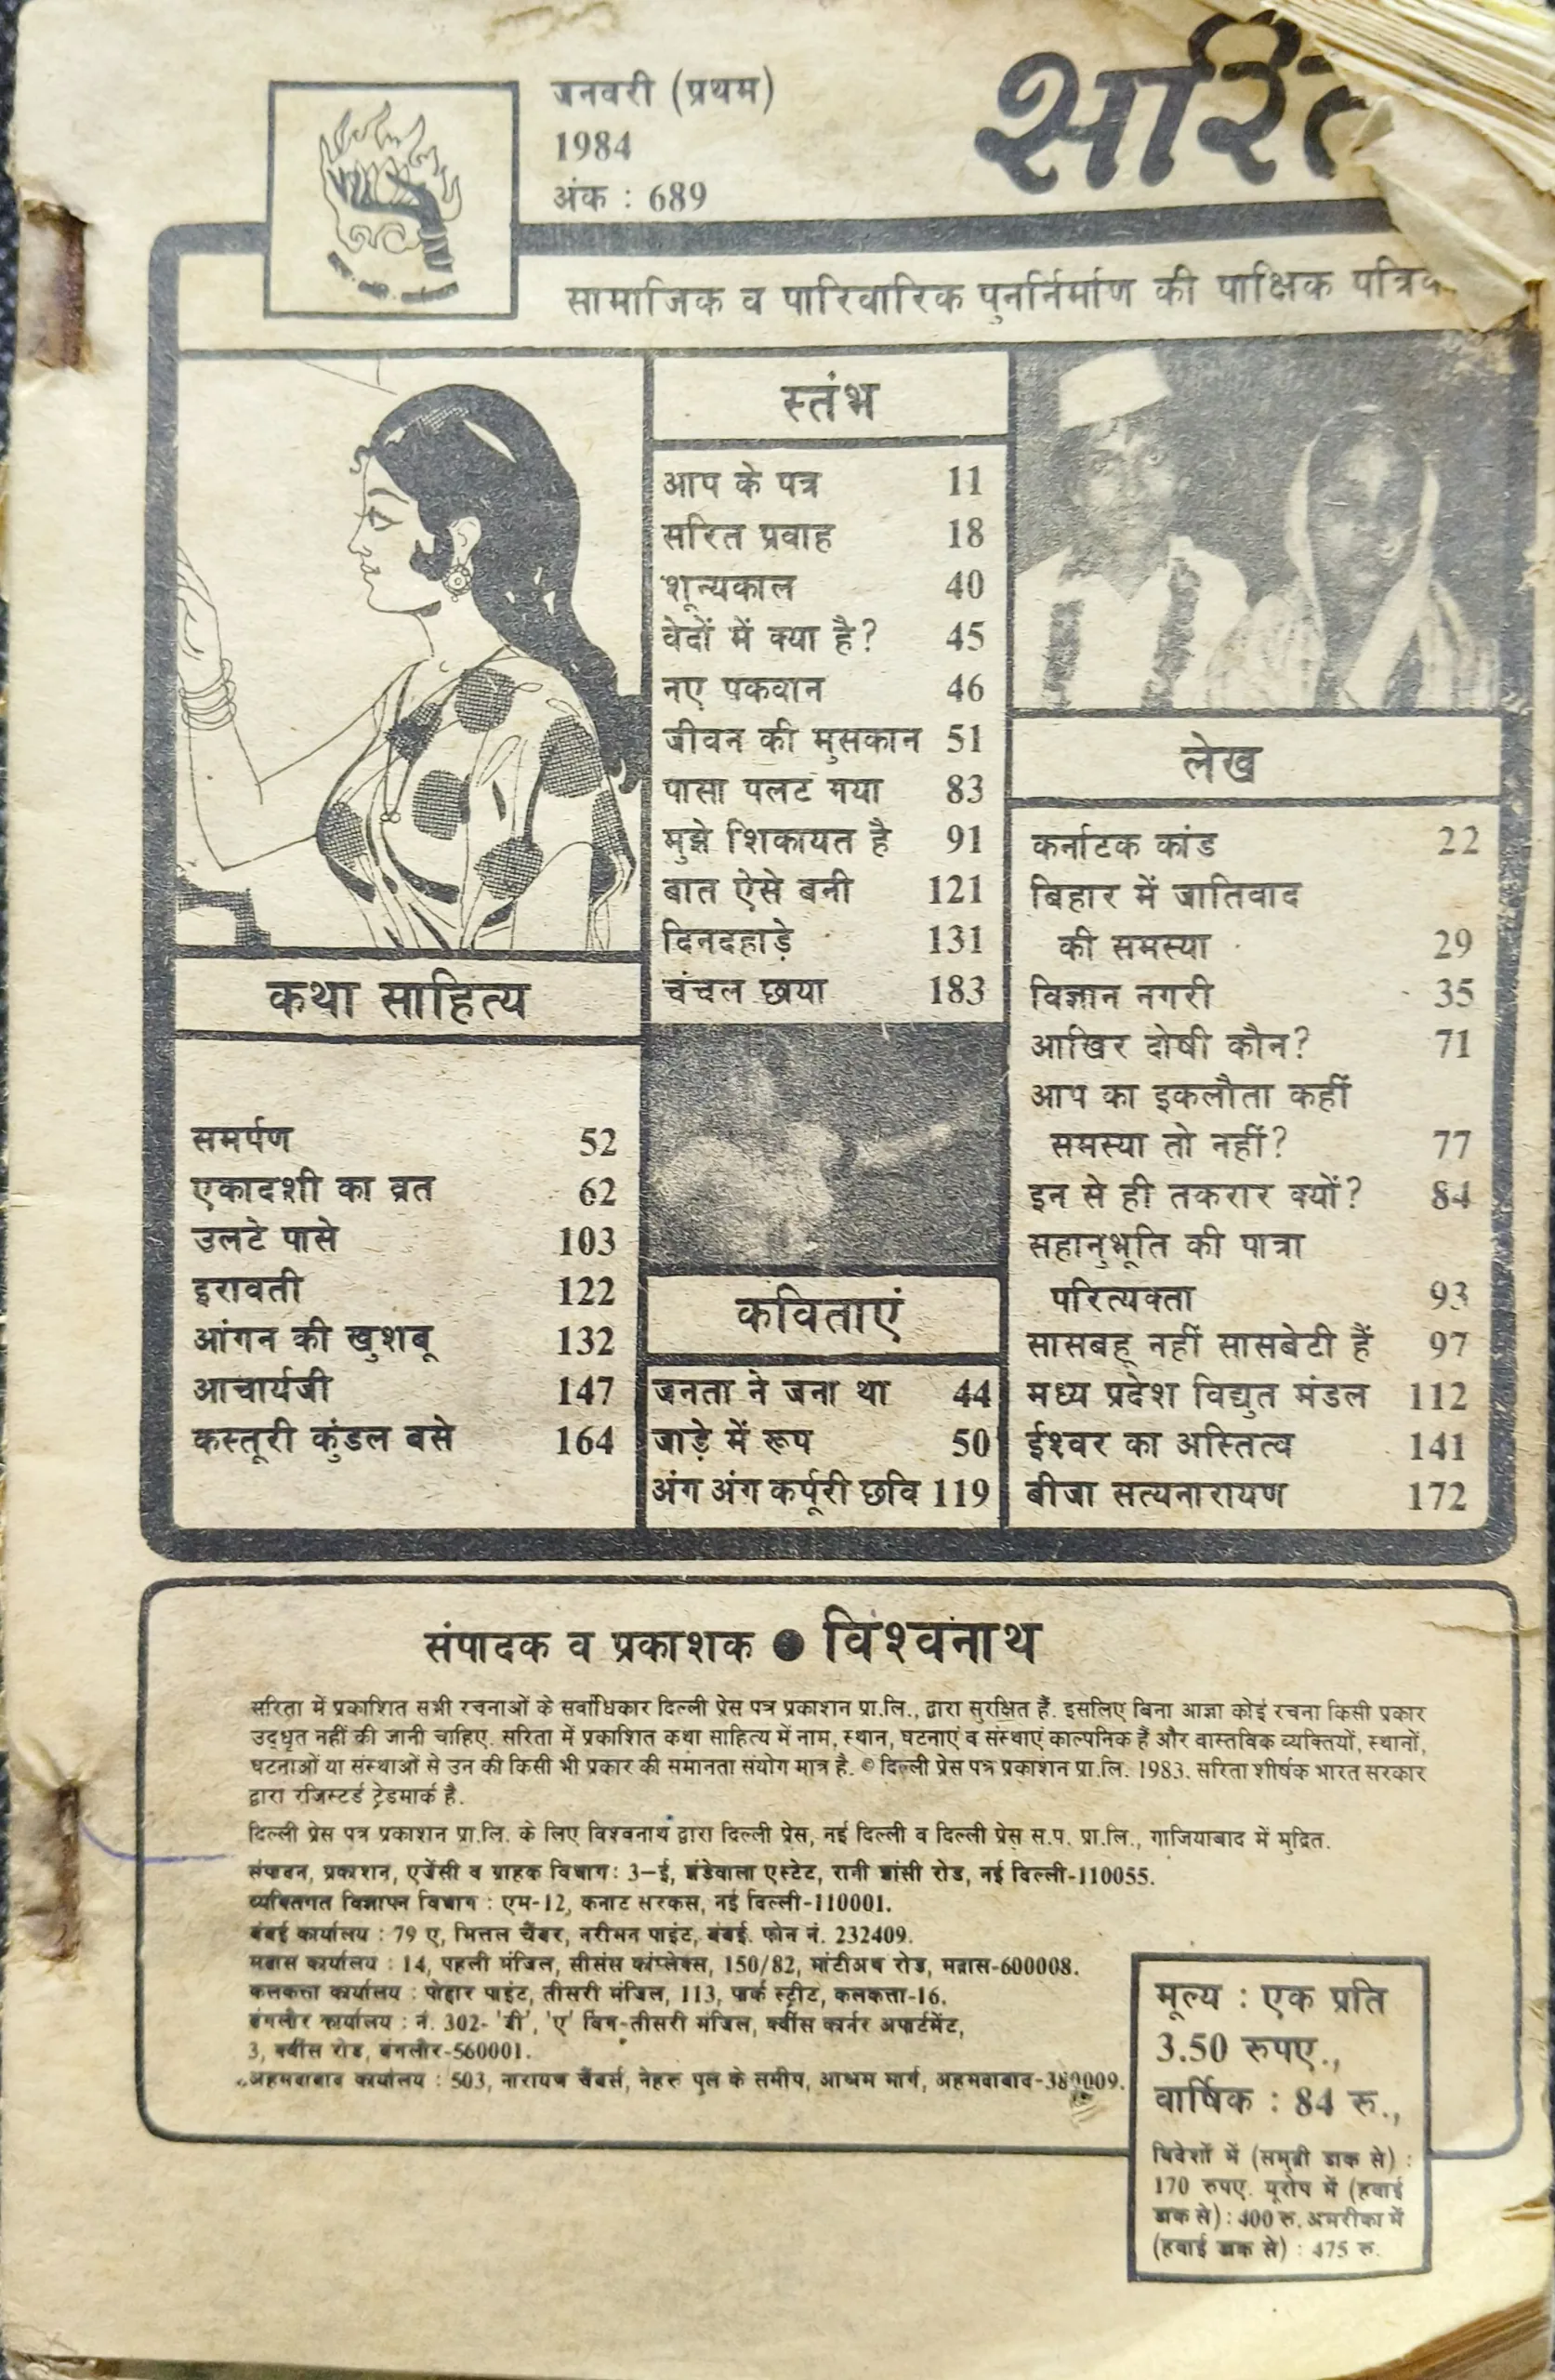 जनवरी (प्रथम)
1984
अंक : 689
सामाजिक व पारिवारिक पुनर्निर्माण की पाक्षिक
स्तंभ
आप के पत्र 11
सरित प्रवाह 18
शून्यकाल 40
वेदों में क्या है? 45
नए पकवान 46
जीवन की मुसकान 51
पासा पलट गया 83
मुझे शिकायत है 91
बात ऐसे बनी 121
दिनदहाड़े 131
चंचल छाया 183
कथा साहित्य
समर्पण 52
एकादशी का व्रत 62
उलटे पासे 103
इरावती 122
आंगन की खुशबू 132
आचार्यजी 147
कस्तूरी कुंडल बसे 164
कविताएं
जनता ने जना था 44
जाड़े में रूप 50
अंग अंग कर्पूरी छवि 119
लेख
कर्नाटक कांड 22
बिहार में जातिवाद
की समस्या 29
विज्ञान नगरी 35
आखिर दोषी कौन? 71
आप का इकलौता कहीं
समस्या तो नहीं? 77
इन से ही तकरार क्यों? 84
सहानुभूति की पात्रा
परित्यक्ता 93
सासबहू नहीं सासबेटी हैं 97
मध्य प्रदेश विद्युत मंडल 112
ईश्वर का अस्तित्व 141
बीजा सत्यनारायण 172
संपादक व प्रकाशक ● विश्वनाथ
सरिता में प्रकाशित सभी रचनाओं के सर्वाधिकार दिल्ली प्रेस पत्र प्रकाशन प्रा.लि., द्वारा सुरक्षित हैं. इसलिए बिना आज्ञा कोई रचना किसी प्रकार
उद्धृत नहीं की जानी चाहिए. सरिता में प्रकाशित कथा साहित्य में नाम, स्थान, घटनाएं व संस्थाएं काल्पनिक हैं और वास्तविक व्यक्तियों, स्थानों,
घटनाओं या संस्थाओं से उन की किसी भी प्रकार की समानता संयोग मात्र है. © दिल्ली प्रेस पत्र प्रकाशन प्रा.लि. 1983. सरिता शीर्षक भारत सरकार
द्वारा रजिस्टर्ड ट्रेडमार्क है.
दिल्ली प्रेस पत्र प्रकाशन प्रा.लि. के लिए विश्वनाथ द्वारा दिल्ली प्रेस, नई दिल्ली व दिल्ली प्रेस स.प. प्रा.लि., गाजियाबाद में मुद्रित.
संपादन, प्रकाशन, एजेंसी व ग्राहक विभाग: 3-ई, झंडेवाला एस्टेट, रानी झांसी रोड, नई दिल्ली-110055.
व्यक्तिगत विज्ञापन विभाग : एम-12, कनाट सरकस, नई दिल्ली-110001.
बंबई कार्यालय : 79 ए, मित्तल चैंबर, नरीमन पाइंट, बंबई. फोन नं. 232409.
मद्रास कार्यालय : 14, पहली मंजिल, सीसंस कांप्लेक्स, 150/82, मांटीअथ रोड, मद्रास-600008.
कलकत्ता कार्यालय : पोद्दार पाइंट, तीसरी मंजिल, 113, पार्क स्ट्रीट, कलकत्ता-16.
बंगलौर कार्यालय : नं. 302- 'बी', 'ए' विंग-तीसरी मंजिल, क्वींस कार्नर अपार्टमेंट,
3, क्वींस रोड, बंगलौर-560001.
अहमदाबाद कार्यालय : 503, नारायण चैंबर्स, नेहरू पुल के समीप, आश्रम मार्ग, अहमदाबाद-380009.
मूल्य : एक प्रति
3.50 रुपए.,
वार्षिक : 84 रु.,
विदेशों में (समुद्री डाक से) :
170 रुपए. यूरोप में (हवाई
डाक से) : 400 रु. अमरीका में
(हवाई डाक से) : 475 रु.